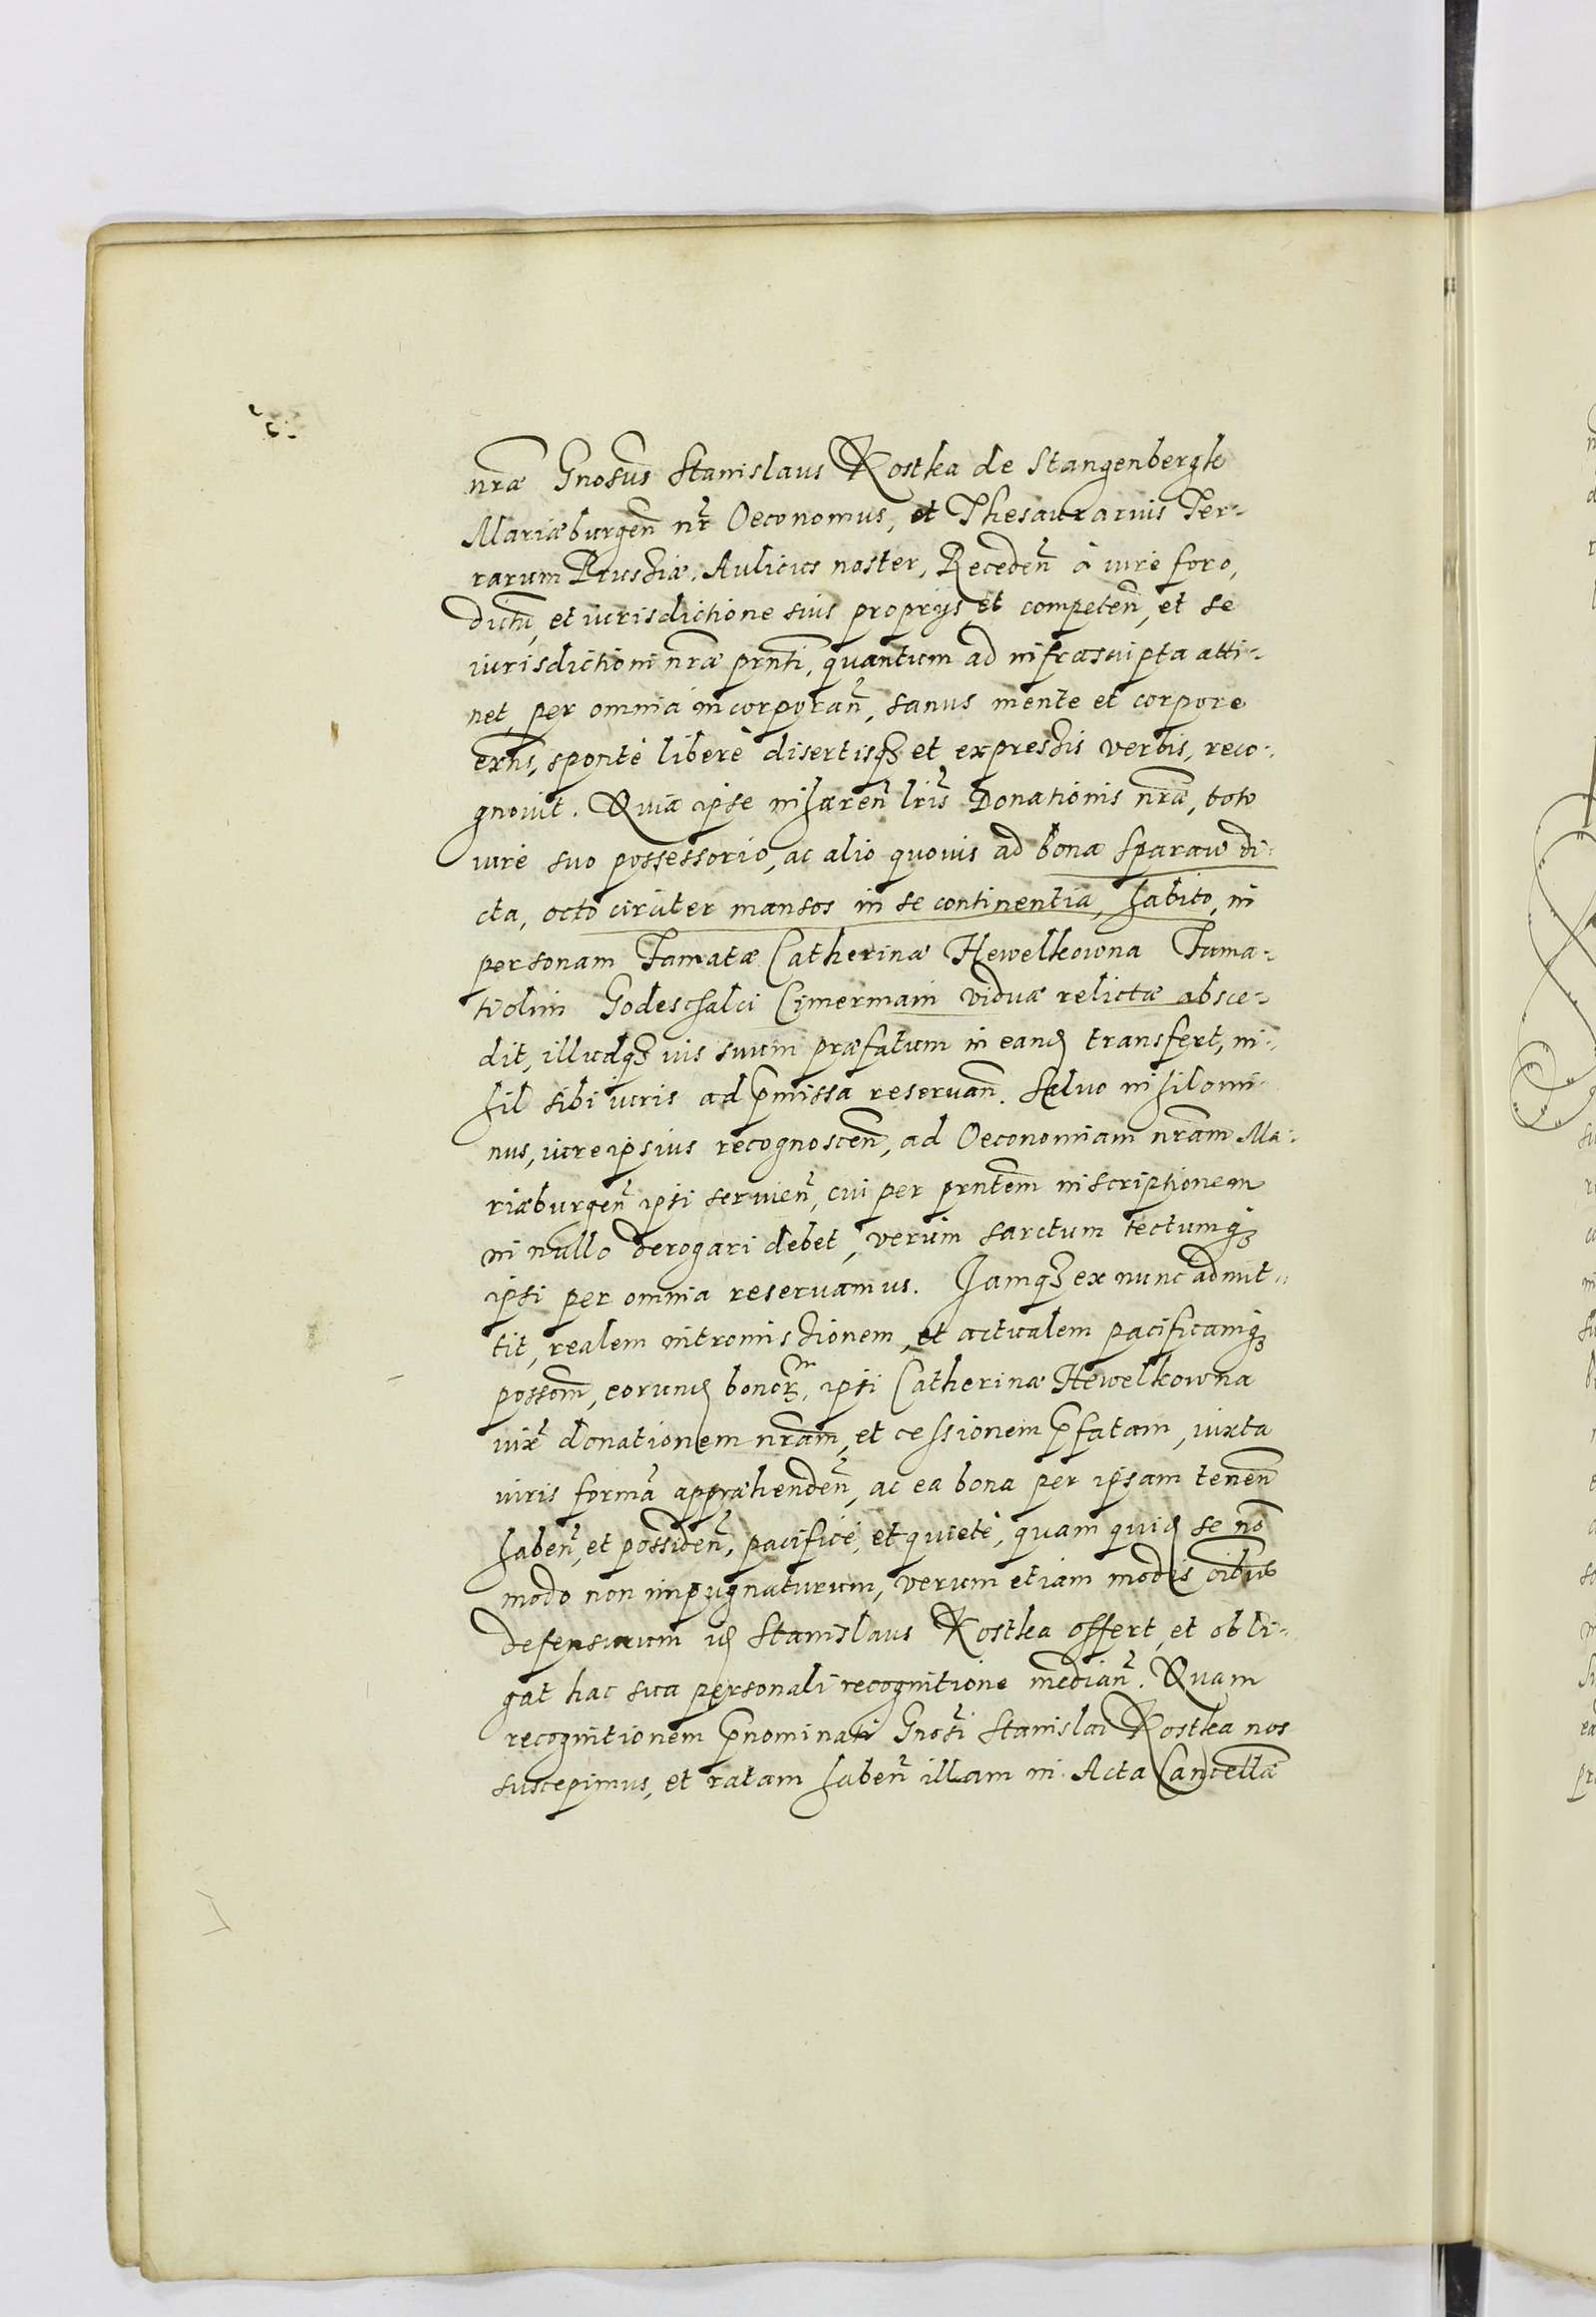 nrae Gnosus Stanislaus Kostka de Stangenbergk
Mariaeburgen nr Oeconomus, et Thesaurarius Ter-
rarum Prussiae, Aulicus noster, Receden à iure foro,
dictu, et iurisdictione suis proprijs et competen, et se
iurisdictioni nrae prnti, quantum ad infrascripta atti-
net, per omnia incorporan, sanus mente et corpore
exns, sponte libere disertisq3 et expressis verbis, reco-
gnovit. Quia ipse inhaeren lris Donationis nrae, toto
iure suo possessorio, ac alio quovis ad bona Sparaw di-
cta, octo circiter mansos in se continentia, habito, in
personam Famatae Catherinae Hewelkowna Fama-
ti olim Godeschalci Cimermain viduae relictae absce-
dit, illudq3 ius suum praefatum in eand transfert, ni-
hil sibi iuris ad pmissa reservan. Salvo nihilomi-
nus, iure ipsius recognoscen, ad Oeconomiam nram Ma-
riaeburgen ipsi servien, cui per prntem inscriptionem
in nullo derogari debet, verum sarctum tectumq3
ipsi per omnia reservamus. Iamq3 ex nunc admit-
tit, realem intromissionem, et actualem pacificamq3
possom, eorund bonor, ipsi Catherinae Hewelkowna
iux donationem nram, et cessionem pfatam, iuxta
iuris forma appraehenden, ac ea bona per ipsam tenen
haben, et possiden, pacifice, et quiete, quam quid se no
modo non impugnaturum, verum etiam modis oibus
defensurum id Stanislaus Kostka offert, et obli-
gat hac sua personali recognitione median. Quam
recognitionem pnominati Gnosi Stanislai Kostka nos
suscepimus, et ratam haben illam in Acta Cancellae